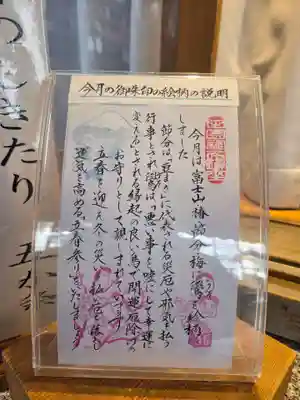 今月の御朱印の絵柄の説明
今月は富士山、椿、節分、梅、鷽の絵柄に
しました
節分は「豆まき」に代表される災厄や邪気を払う
行事とされ、鷽は、悪い事を嘘にして幸運に
変えるとされる縁起の良い鳥で開運厄除けの
お守りとして親しまれています
立春を迎え冬の災いを払い、厄を落とし
運気を高める、立春参りをいたしましょう
しきたり